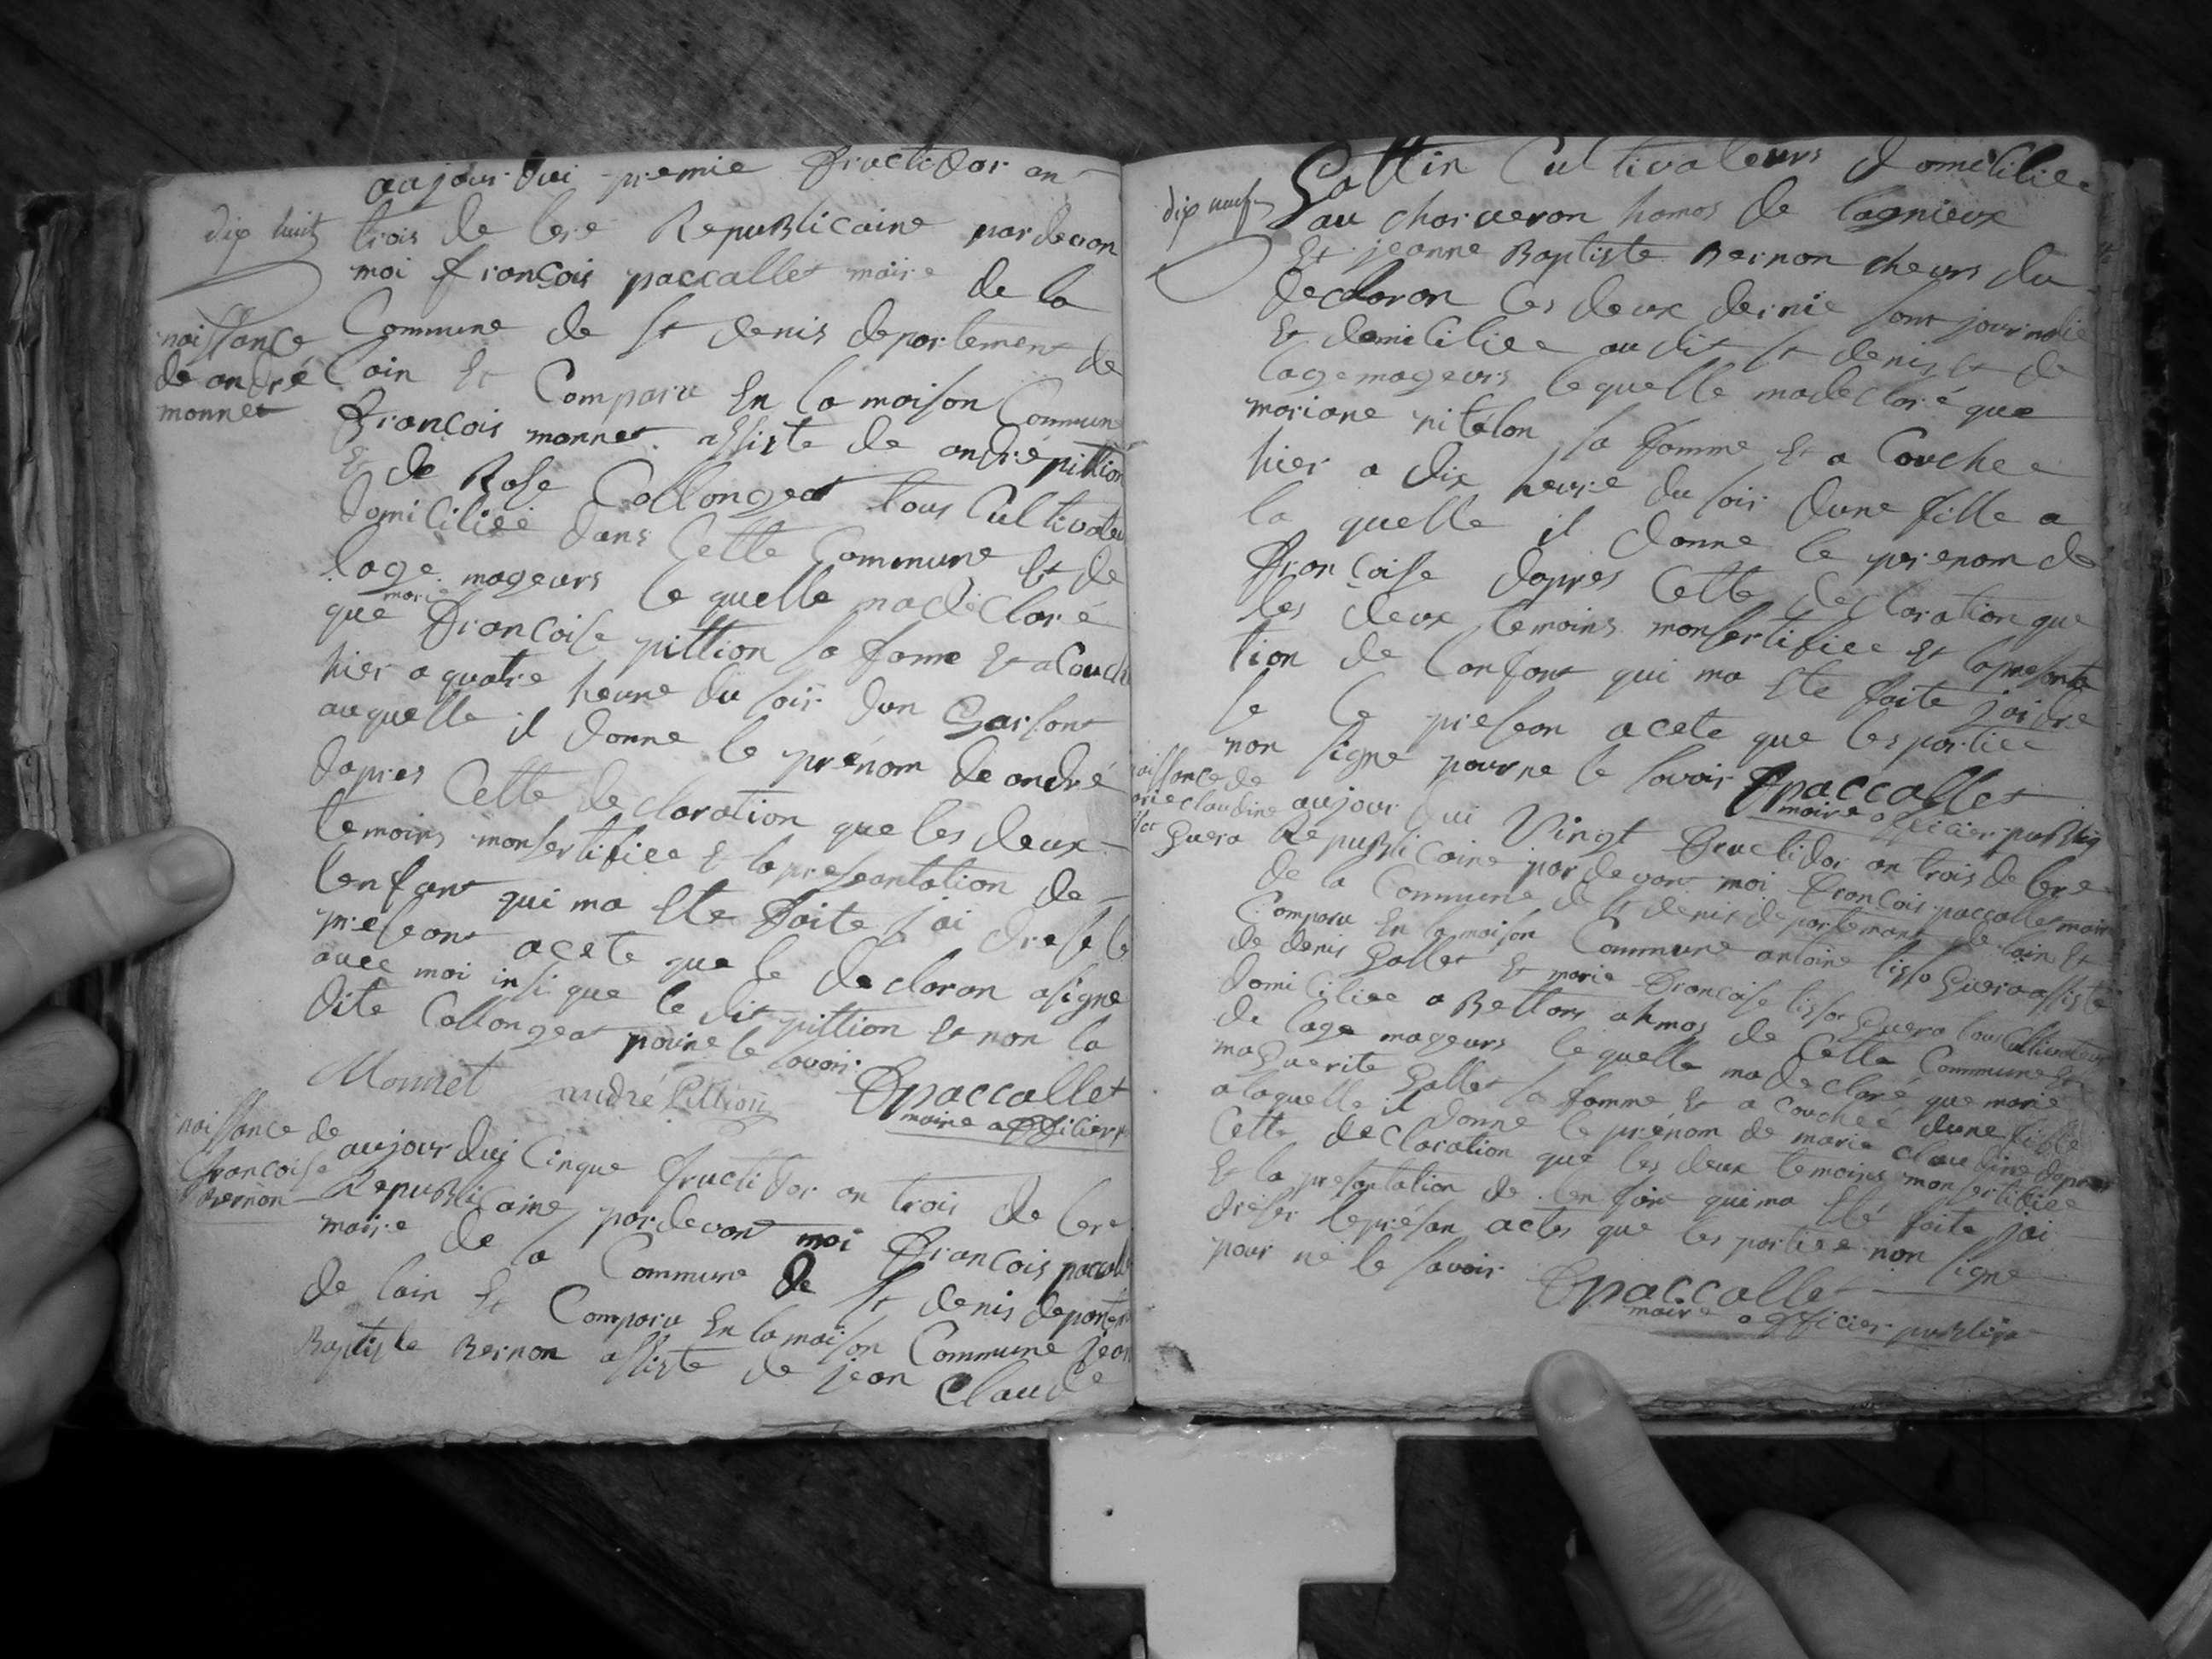 dix huit
aujourdui premie fructidor an
trois de lere Republicaine pardevan
moi françois paccallet maire de la
naissance de andré monnet
Commune de st denis departement de
lain Et Comparu En la maison Commune
françois monnet assiste de andré pittion
Et de Rose Collongeat tous Cultivateu
domiciliee dans Cette Commune Et de
lage mageurs le quelle madéclaré
que marie françoise pittion sa fame Et a Couch
hier a quatre heure du soir dun Garsont
auquelle il donne le prénom de andré
dapres Cette declaration que les deux
temoins monsertifiee Et lapreseantation de
lenfant qui ma Ete faite jai drese le
preseant acete que le declaron asigne
avec moi insi que le dit pittion Et non la
dite Collongeat pour ne le savoir
Monnet andré Pittion fpaccallet
maire officier p
naissance de
françoise
Bernon
aujourdui Cinque fructidor an trois de lere
Republicaine pardevant moi françois paccall
maire de la Commune de st denis departem
de lain Et Comparu En la maison Commune jean
Baptiste Bernon assiste de jean Claude
dix neuf
Gottin Cultivateurs domiciliee
au charveron hamos de lagnieux
Et jeanne Baptiste Bernon sheurs du
declaron les deux dernie sont journalie
Et domiciliee audit st denis Et de
lage mageurs lequelle madeclaré que
mariane nitélon sa famme Et a Couchee
hier a dix heure du soir dune fille a
la quelle il donne le prenom de
françoise dapres Cette declaration que
les deux temoins monsertifiee Et lapresenta
tion de lenfant qui ma Ete faite jai dre
se le preseant acete que les partiee
non signe pour ne le savoir fpaccallet
maire officier publiq
naissance de
marie claudine
Guera
aujourdui Vingt fructidor an trois de lere
Republicaine pardevant moi françois paccallet maire
de la Commune de st denis departemant de lain Et
Comparu En la maison Commune antoine lissa Guera assiste
de denis Gallet Et marie françoise Guera tous Cultivateurs
domiciliee a Bettans ahmos de Cette Commune Et
de lage mageurs lequelle ma declaré que marie
maguerite Gallet sa famme Et a couchée dune fille
alaquelle il donne le prénom de marie claudine dapres
Cette declaration que les deux temoins monsertifiee
Et la presentation de lenfant qui ma Eté faite jai
dreser leprésan actes que les partiee non signe
pour ne le savoir
fpaccallet
maire officier publiq